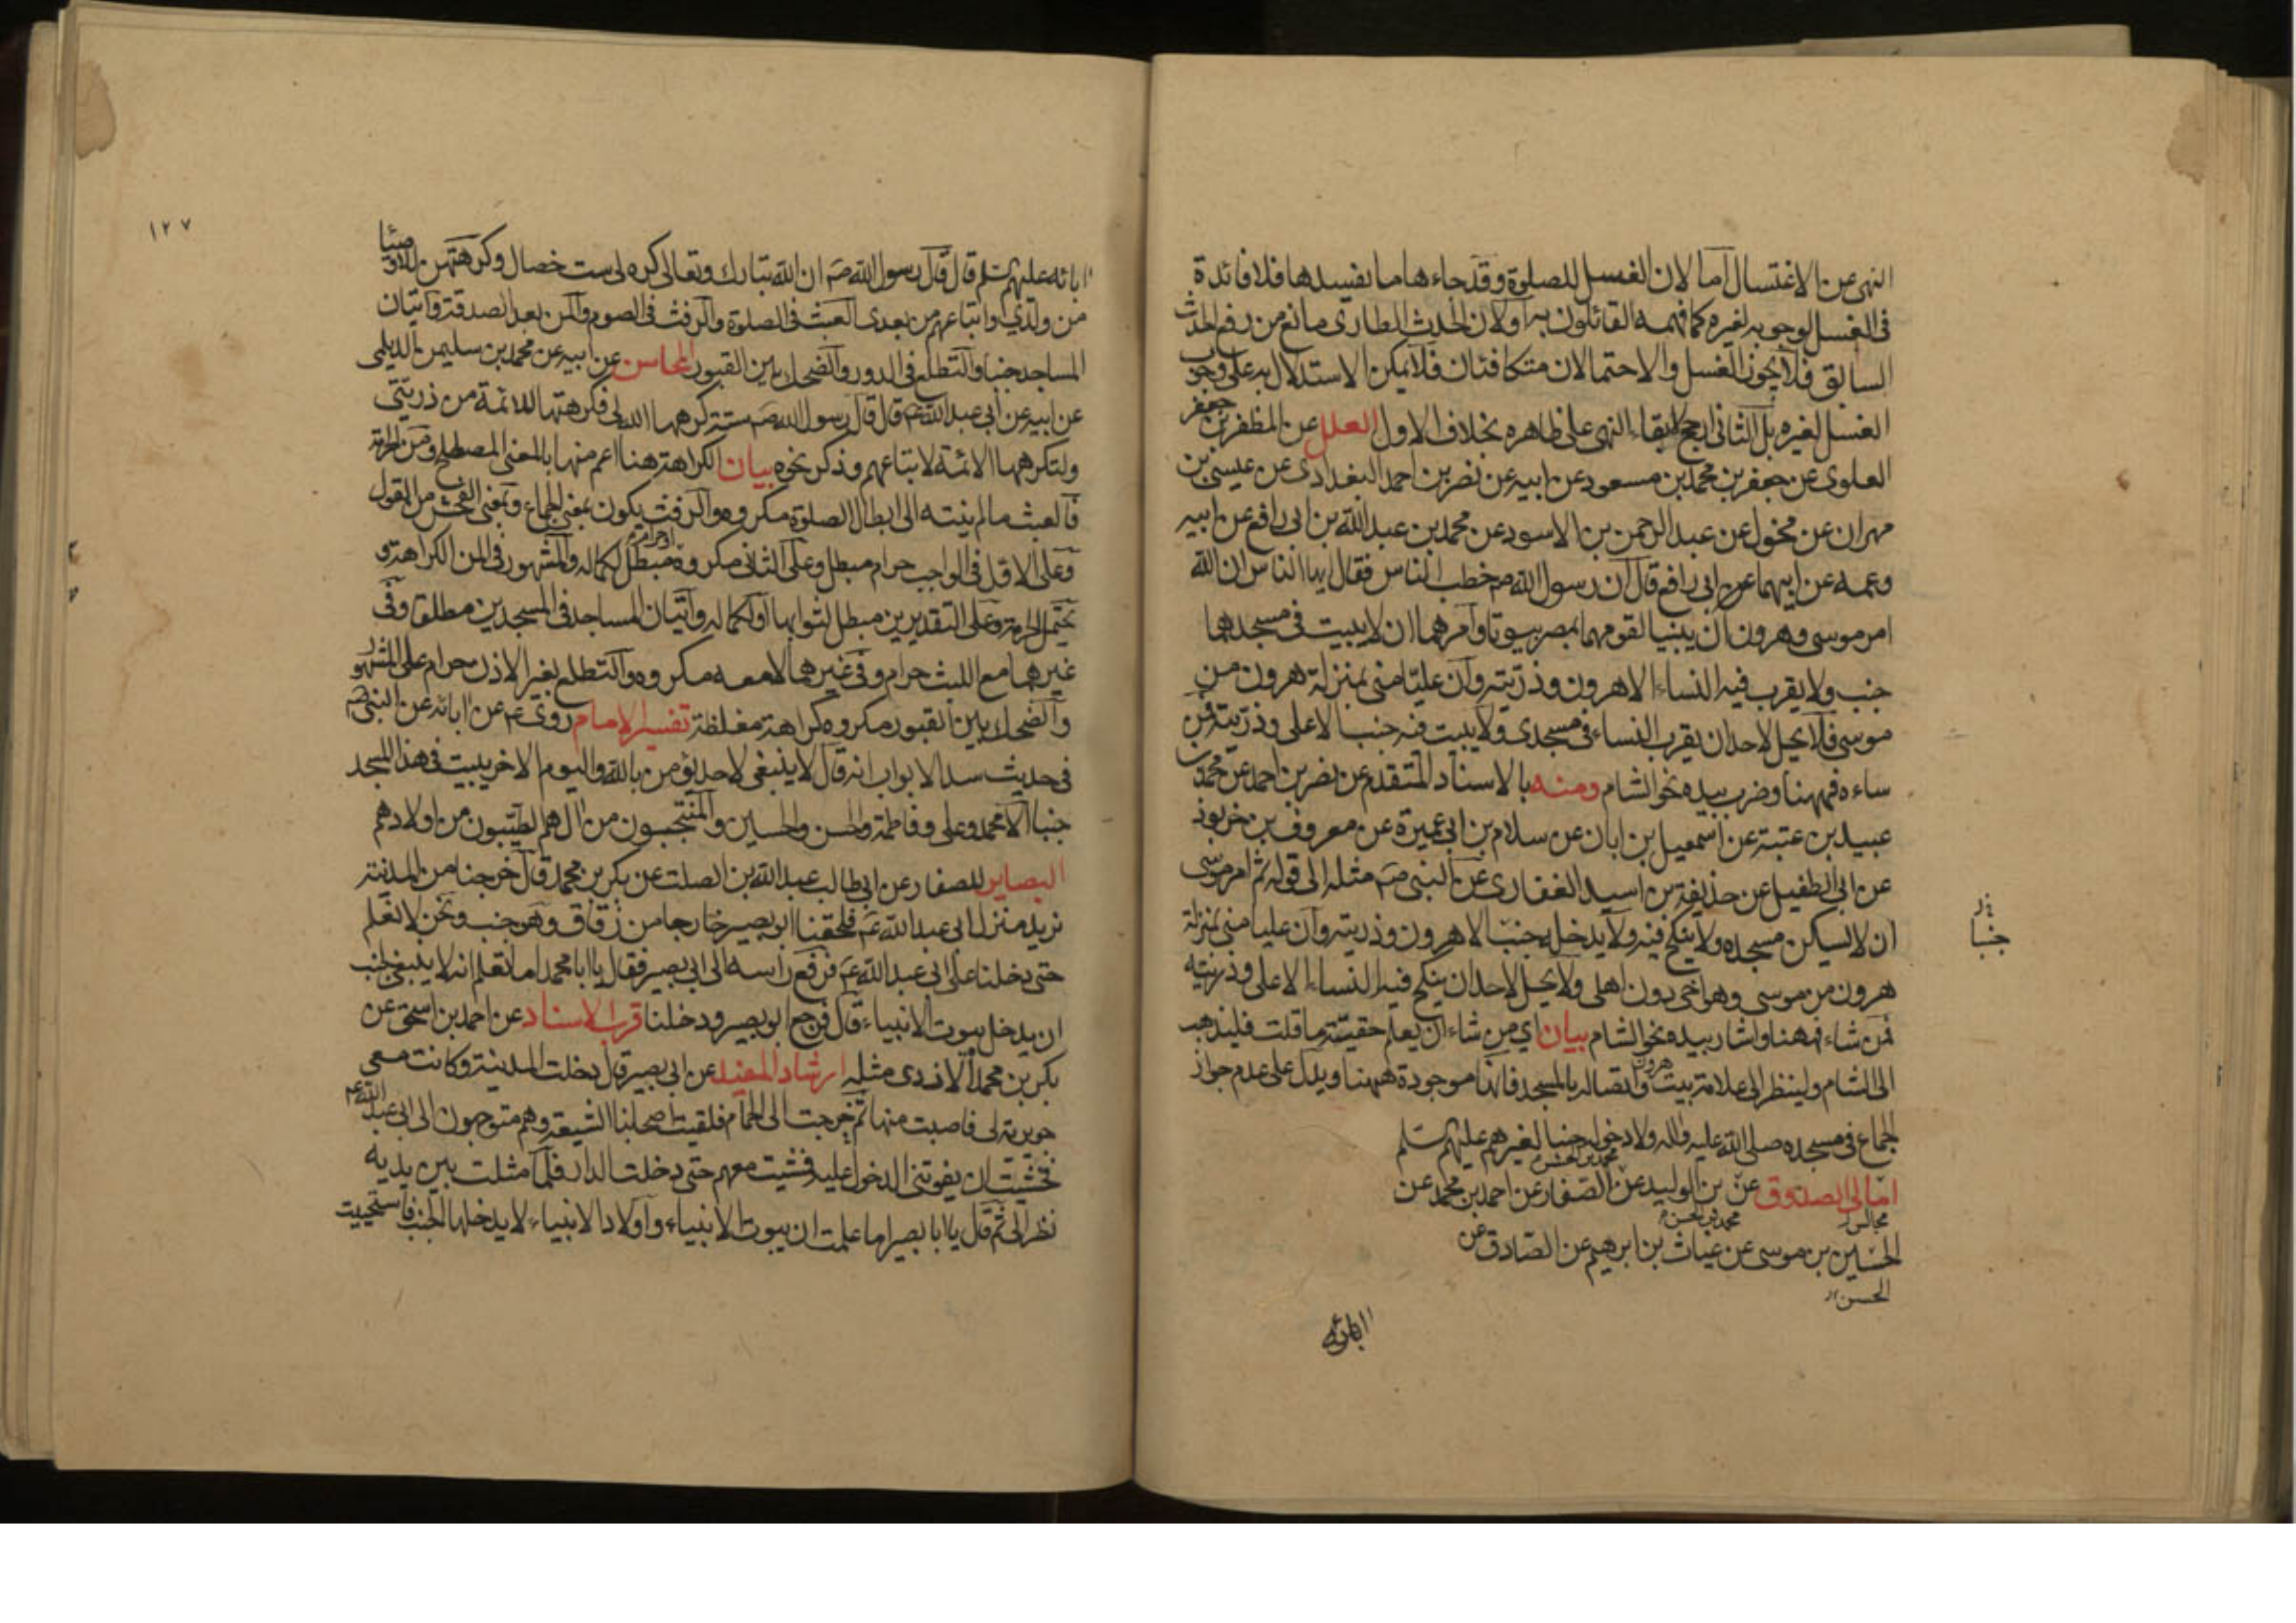 النهى عن الاغتسال اما لان الغسل للصلوة وقد جاءها ما يفسدها فلا فائدة
فى الغسل لوجوبه لغيره كما فهمه القائلون به اولان الحدث الطارى مانع من رفع الحدث
السابق فلا يجوز الغسل والاحتمالان متكافئان فلا يمكن الاستدلال به على وجوب
الغسل لغيره بل الثانى ارجح لابقاء النهى على ظاهره بخلاف الاول العلل عن المظفر بن جعفر
العلوى عن جعفر بن محمد بن مسعود عن ابيه عن نصر بن احمد البغدادى عن عيسى بن
مهران عن مخول عن عبد الرحمن بن الاسود عن محمد بن عبد الله بن ابى رافع عن ابيه
وعمه عن ابيهما عن ابى رافع قال ان رسول الله ص خطب الناس فقال ايها الناس ان الله
امر موسى وهرون ان يبنيا لقومهما بمصر بيوتا وامرهما ان لا يبيت فى مسجدهما
جنب ولا يقرب فيه النساء الا هرون وذريته وان عليا منى بمنزلة هرون من
موسى فلا يحل لاحد ان يقرب النساء فى مسجدى ولا يبيت فيه جنب الا على وذريته فمن
ساءه فههنا وضرب بيده نحو الشام ومنه بالاسناد المتقدم عن نصر بن احمد عن محمد بن
عبيد بن عتبة عن اسمعيل بن ابان عن سلام بن ابى عميرة عن معروف بن خربوذ
عن ابى الطفيل عن حذيفة بن اسيد الغفارى عن النبى ص مثله الى قوله ثم امر موسى
ان لا يسكن مسجده ولا ينكح فيه ولا يدخله جنب الا هرون وذريته وان عليا منى بمنزلة
جنبا
هرون من موسى وهو اخى دون اهلى ولا يحل لاحد ان ينكح فيه النساء الا على وذريته
فمن شاء فههنا واشار بيده نحو الشام بيان اي من شاء ان يعلم حقيته ما قلت فليذهب
الى الشام ولينظر الى علامة بيت هرون واتصاله بالمسجد فانها موجودة ههنا ويدل على عدم جواز
الجماع فى مسجده صلى الله عليه واله ولا دخوله جنبا لغيرهم عليهم السلم
امالى الصدوق عن بن الوليد عن الصفار عن احمد بن محمد عن
مجالس
الحسين بن موسى عن غياث بن ابرهيم عن الصادق عن
الحسن
ابائه
١٢٧
ابائه عليهم السلم قال قال رسول الله ص ان الله تبارك وتعالى كره لى ست خصال وكرهتهن للاوصيا
من ولدي واتباعهم من بعدى العبث فى الصلوة والرفث فى الصوم والمن بعد الصدقة واتيان
المساجد جنبا والتطلع فى الدور والضحك بين القبور المحاسن عن ابيه عن محمد بن سليمن الديلمى
عن ابيه عن ابى عبد الله ع قال قال رسول الله ص ستة كرهها الله لى فكرهتها للائمة من ذريتى
ولتكرهها الائمة لاتباعهم وذكر نحوه بيان الكراهة هنا اعم منها بالمعنى المصطلح ومن الحرمة
فالعبث ما لم ينته الى ابطال الصلوة مكروه والرفث يكون بمعنى الجماع وبمعنى الفحش من القول
وعلى الاول فى الواجب حرام مبطل وعلى الثانى مكروه او حرام مبطل لكماله والمشهور فى المن الكراهة و
يحتمل الحرمة وعلى التقديرين مبطل لثوابها او لكماله واتيان المساجد فى المسجدين مطلقا وفى
غيرهما مع اللبث حرام وفى غيرهما لا معه مكروه والتطلع بغير الاذن حرام على المشهور
والضحك بين القبور مكروه كراهة مغلظة تفسير الامام روى ع عن ابائه عن النبى ص
فى حديث سد الابواب انه قال لا ينبغى لاحد يؤمن بالله واليوم الاخر يبيت فى هذا المسجد
جنبا الا محمد وعلى وفاطمة والحسن والحسين والمنتجبون من الهم الطيبون من اولادهم
البصاير للصفار عن ابى طالب عبد الله بن الصلت عن بكر بن محمد قال خرجنا من المدينة
نريد منزل ابى عبد الله ع فلحقنا ابو بصير خارجا من زقاق وهو جنب ونحن لا نعلم
حتى دخلنا على ابى عبد الله ع فرفع راسه الى ابى بصير فقال يا ابا محمد اما تعلم انه لا ينبغى لجنب
ان يدخل بيوت الانبياء قال فرجع ابو بصير ودخلنا قرب الاسناد عن احمد بن اسحق عن
بكر بن محمد الازدى مثله ارشاد المفيد عن ابى بصير قال دخلت المدينة وكانت معى
جويرية لى فاصبت منها ثم خرجت الى الحمام فلقيت اصحابنا الشيعة وهم متوجهون الى ابى عبد الله ع
فخشيت ان يفوتنى الدخول عليه فمشيت معهم حتى دخلت الدار فلما مثلت بين يديه
نظر الى ثم قال يا ابا بصير اما علمت ان بيوت الانبياء واولاد الانبياء لا يدخلها الجنب فاستحييت